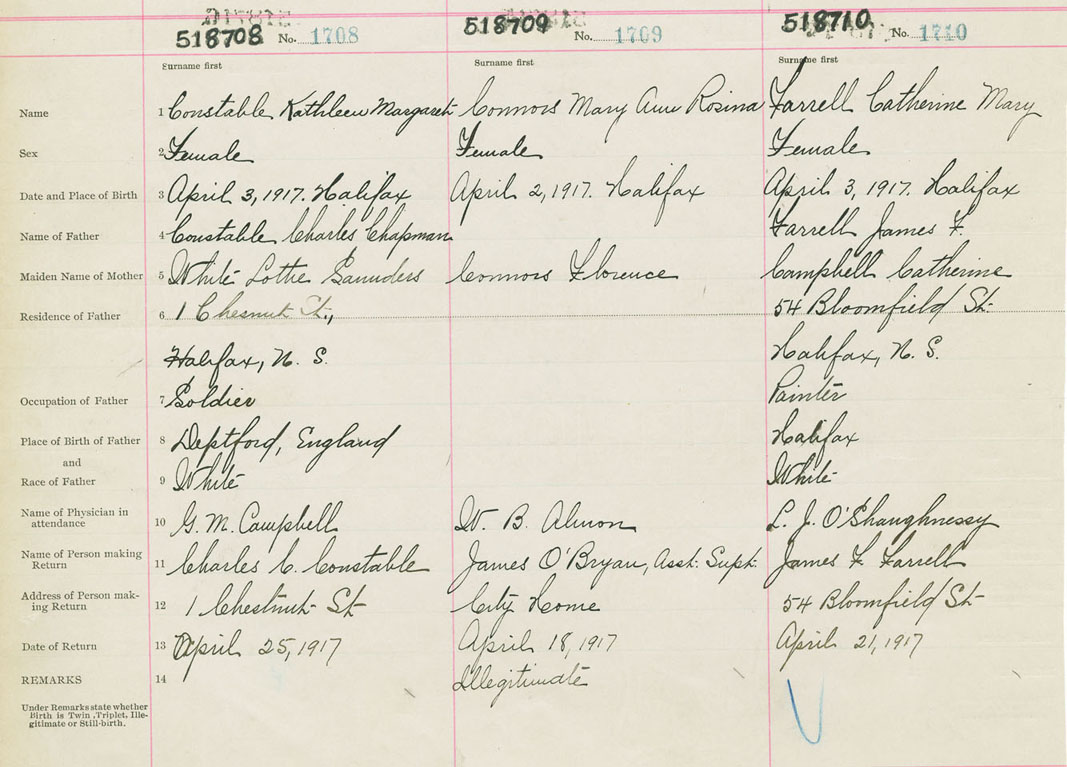 518708 No. 1708 518709 No. 1709 518710 No. 1710
Surname first Surname first Surname first
Name 1 Constable Kathleen Margaret Connors Mary Ann Rosina Farrell Catherine Mary
Sex 2 Female Female Female
Date and Place of Birth 3 April 3, 1917. Halifax April 2, 1917. Halifax April 3, 1917. Halifax
Name of Father 4 Constable Charles Chapman Farrell James F.
Maiden Name of Mother 5 White Lottie Saunders Connors Florence Campbell Catherine
Residence of Father 6 1 Chesnut St., 54 Bloomfield St.
Halifax, N. S. Halifax, N. S.
Occupation of Father 7 Soldier Painter
Place of Birth of Father 8 Deptford, England Halifax
and
Race of Father 9 White White
Name of Physician in attendance 10 G. M. Campbell W. B. Almon L. J. O'Shaughnessy
Name of Person making Return 11 Charles C. Constable James O'Bryan, Asst. Supt. James F. Farrell
Address of Person mak-ing Return 12 1 Chestnut St City Home 54 Bloomfield St
Date of Return 13 April 25, 1917 April 18, 1917 April 21, 1917
REMARKS 14 Illegitimate
Under Remarks state whether
Birth is Twin, Triplet, Ille-
gitimate or Still-birth.